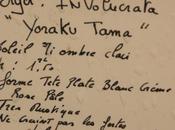 Hyd: INVOLUCRATA
"YORAKU TAMA"
Soleil Mi ombre clair
H: 1m20
forme Tete Plate Blanc Crème
Rose Pale
Tres Rustique
Ne Craint pas les fortes